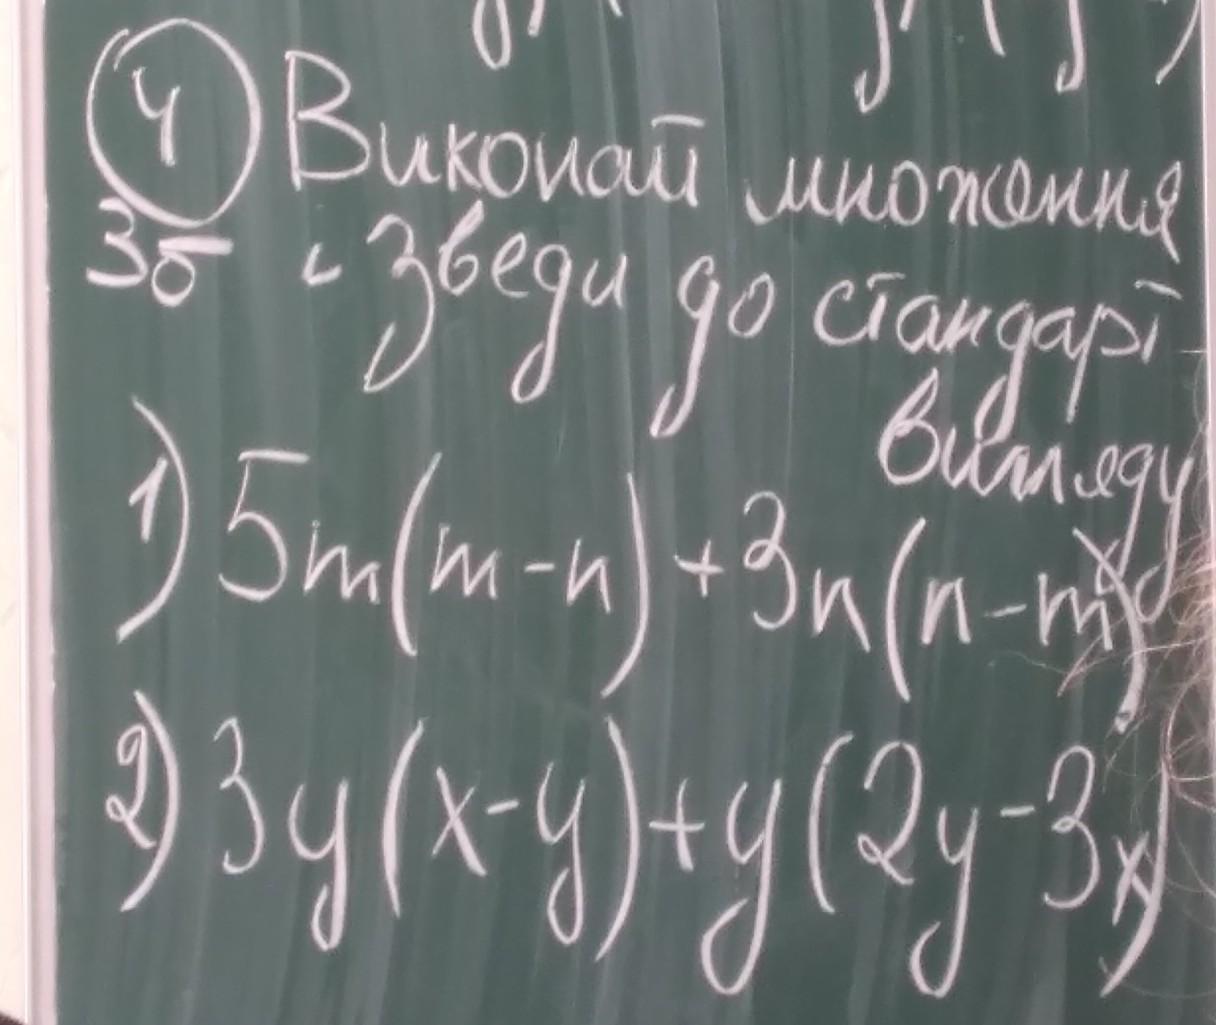 4 Виконай множення
3б і зведи до стандарт
вигляду
1) 5m(m-n)+3n(n-m)
2) 3y(x-y)+y(2y-3x)